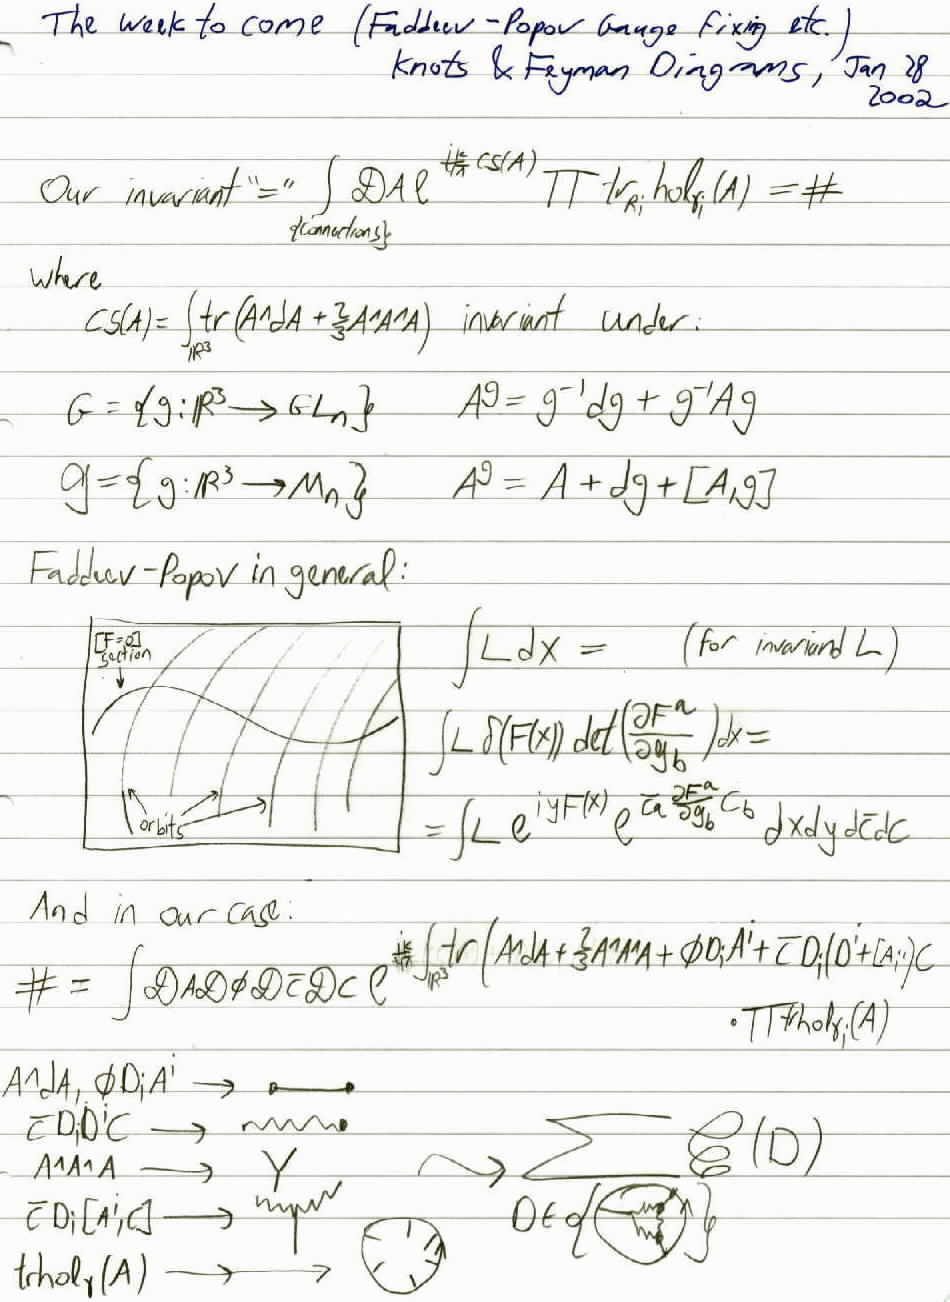 The week to come (Faddeev-Popov Gauge fixing etc.)
Knots & Feyman Diagrams, Jan 28
2002
Our invariant "=" ∫ DA e^{ik/4π CS(A)} ∏ tr_{R_i} hol_{γ_i}(A) = #
{connections}
where
CS(A) = ∫_{ℝ³} tr(A∧dA + 2/3 A∧A∧A) invariant under:
G = {g: ℝ³ → GL_n} A^g = g⁻¹dg + g⁻¹Ag
𝔤 = {g: ℝ³ → M_n} A^g = A + dg + [A,g]
Faddeev-Popov in general:
[F=0]
section
orbits
∫ L dx = (for invariant L)
∫ L δ(F(x)) det(∂F^a/∂g_b) dx =
= ∫ L e^{iyF(x)} e^{c̄_a ∂F^a/∂g_b c_b} dx dy dc̄ dc
And in our case:
# = ∫ DA Dφ Dc̄ Dc e^{ik/4π ∫_{ℝ³} tr(A∧dA + 2/3 A∧A∧A + φD_iA^i + c̄D_i(D^i+[A^i,·])c}
· ∏ tr hol_{γ_i}(A)
A∧dA, φD_iA^i →
c̄D_iD^ic →
A∧A∧A → Y
c̄D_i[A^i,c] →
tr hol_γ(A) →
∑ ℰ(D)
D∈{ }